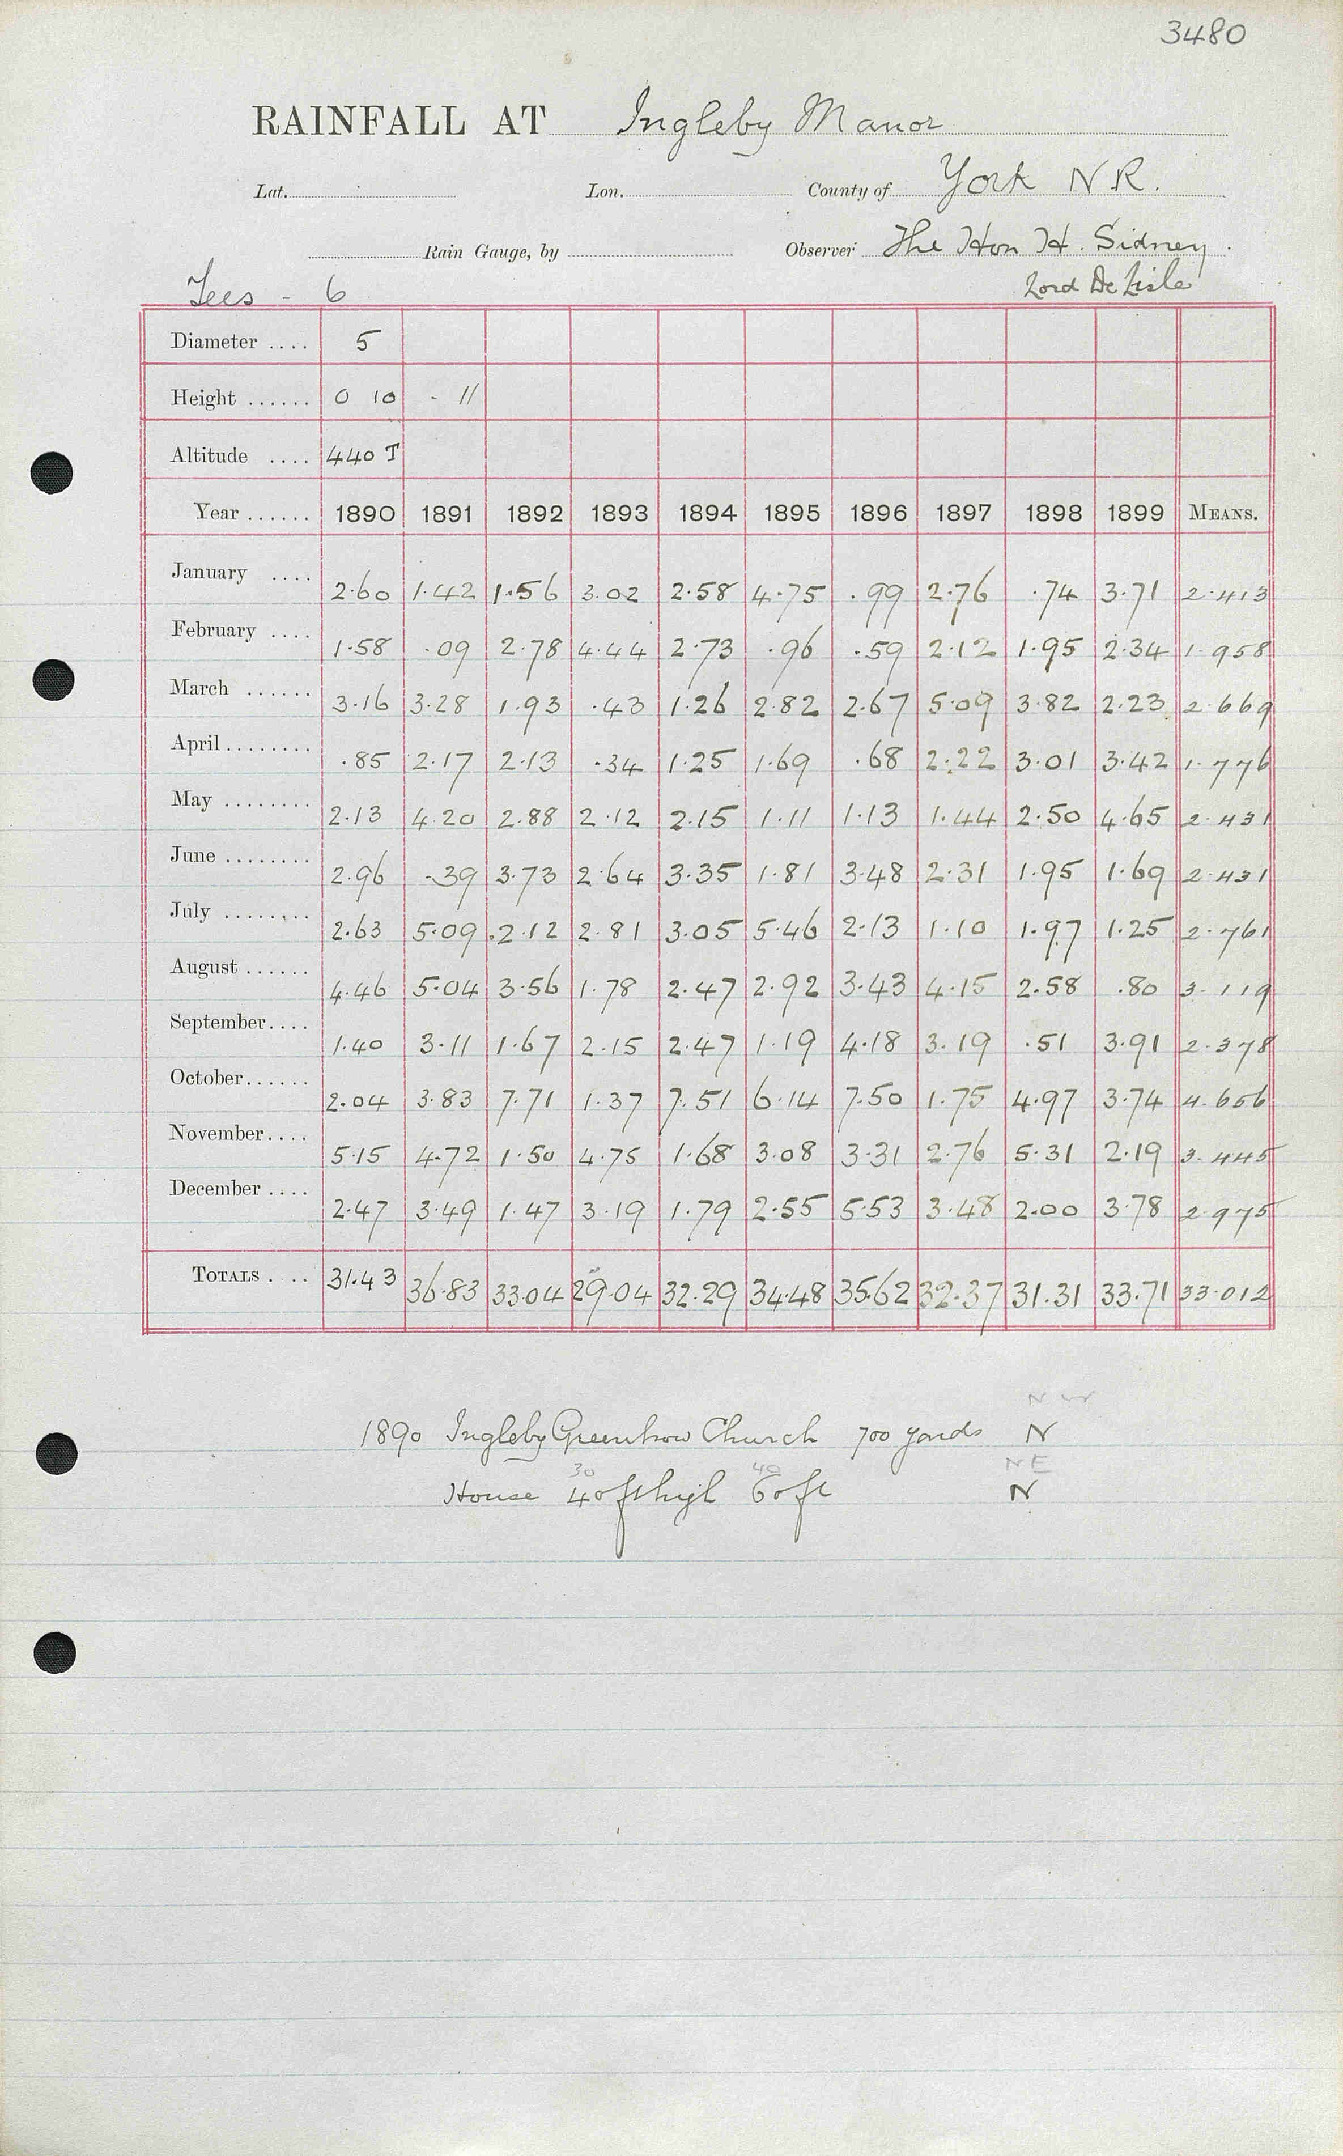 3480
RAINFALL AT Ingleby Manor
Lat. Lon. County of York N R.
Rain Gauge, by Observer The Hon H. Sidney.
Tees - 6 Lord De Lisle
Diameter .... 5
Height ...... 0 10 - 11
Altitude .... 440 T
Year ...... 1890 1891 1892 1893 1894 1895 1896 1897 1898 1899 MEANS.
January .... 2.60 1.42 1.56 3.02 2.58 4.75 .99 2.76 .74 3.71 2.413
February .... 1.58 .09 2.78 4.44 2.73 .96 .59 2.12 1.95 2.34 1.958
March ...... 3.16 3.28 1.93 .43 1.26 2.82 2.67 5.09 3.82 2.23 2.669
April ........ .85 2.17 2.13 .34 1.25 1.69 .68 2.22 3.01 3.42 1.776
May ........ 2.13 4.20 2.88 2.12 2.15 1.11 1.13 1.44 2.50 4.65 2.431
June ........ 2.96 .39 3.73 2.64 3.35 1.81 3.48 2.31 1.95 1.69 2.431
July ........ 2.63 5.09 2.12 2.81 3.05 5.46 2.13 1.10 1.97 1.25 2.761
August ...... 4.46 5.04 3.56 1.78 2.47 2.92 3.43 4.15 2.58 .80 3.119
September.... 1.40 3.11 1.67 2.15 2.47 1.19 4.18 3.19 .51 3.91 2.378
October...... 2.04 3.83 7.71 1.37 7.51 6.14 7.50 1.75 4.97 3.74 4.656
November.... 5.15 4.72 1.50 4.75 1.68 3.08 3.31 2.76 5.31 2.19 3.445
December .... 2.47 3.49 1.47 3.19 1.79 2.55 5.53 3.48 2.00 3.78 2.975
TOTALS .... 31.43 36.83 33.04 29.04 32.29 34.48 35.62 32.37 31.31 33.71 33.012
N W
1890 Ingleby Greenhow Church 700 yards N
30 40 NE
House 40ft high 60ft N